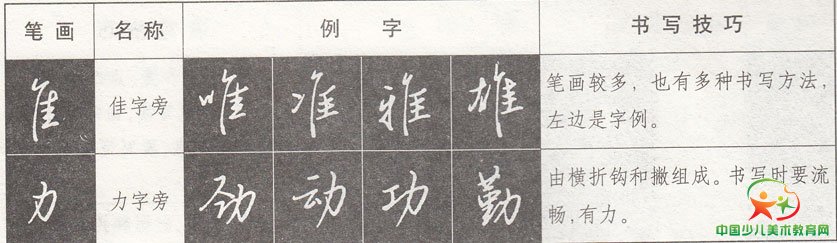 笔画 名称 例字 书写技巧
隹 佳字旁 唯 准 雅 雄 笔画较多，也有多种书写方法，
左边是字例。
力 力字旁 劲 动 功 勤 由横折钩和撇组成。书写时要流
畅，有力。
中国少儿美术教育网